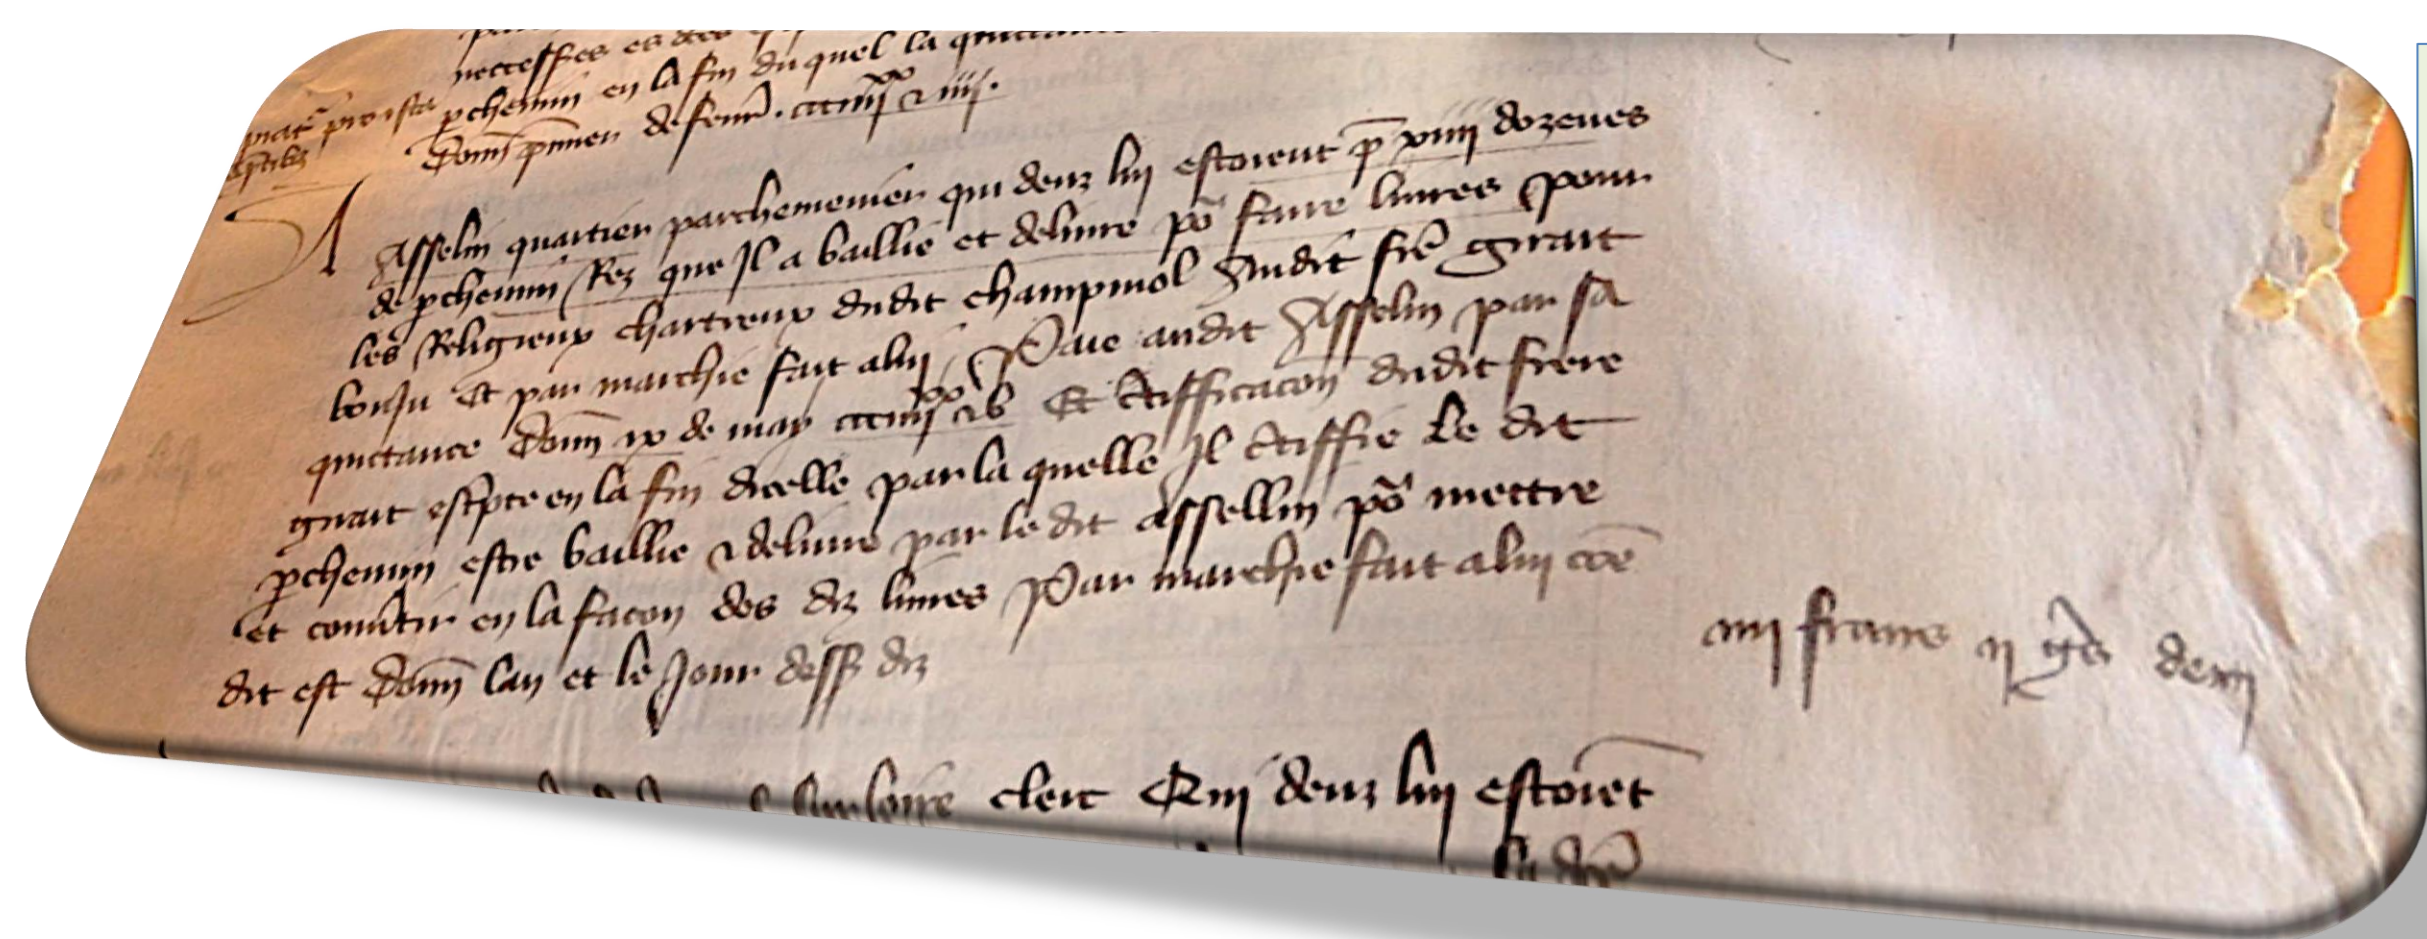 neccessres es
pchemin en la fin du quel la quictance
Donn de fevr. ccc iiii xx & iiii.
A Asselin quartier parchemenier qui deuz lui estoient p xiiii dozenes
de pchemin Rez que Il a baillie et delivre po faire livres pour
les Religieux chartreux dudit champmol Audit fre girart
Et par marchie fait a lui Paie audit Asselin par sa
quictance Donn ix de may ccc iiii xx & v Et ctifficacon dudit frere
girart escpte en la fin dicelle par la quelle Il ctiffie Le dit
pchemin estre baillie & delivre par le dit Assellin po mettre
et convtir en la facon des diz livres Par marchie fait a lui coe
dit est Donn lan et le Jour dess diz
iiii frans ii gs demi
cleric Qui deuz lui estoiet